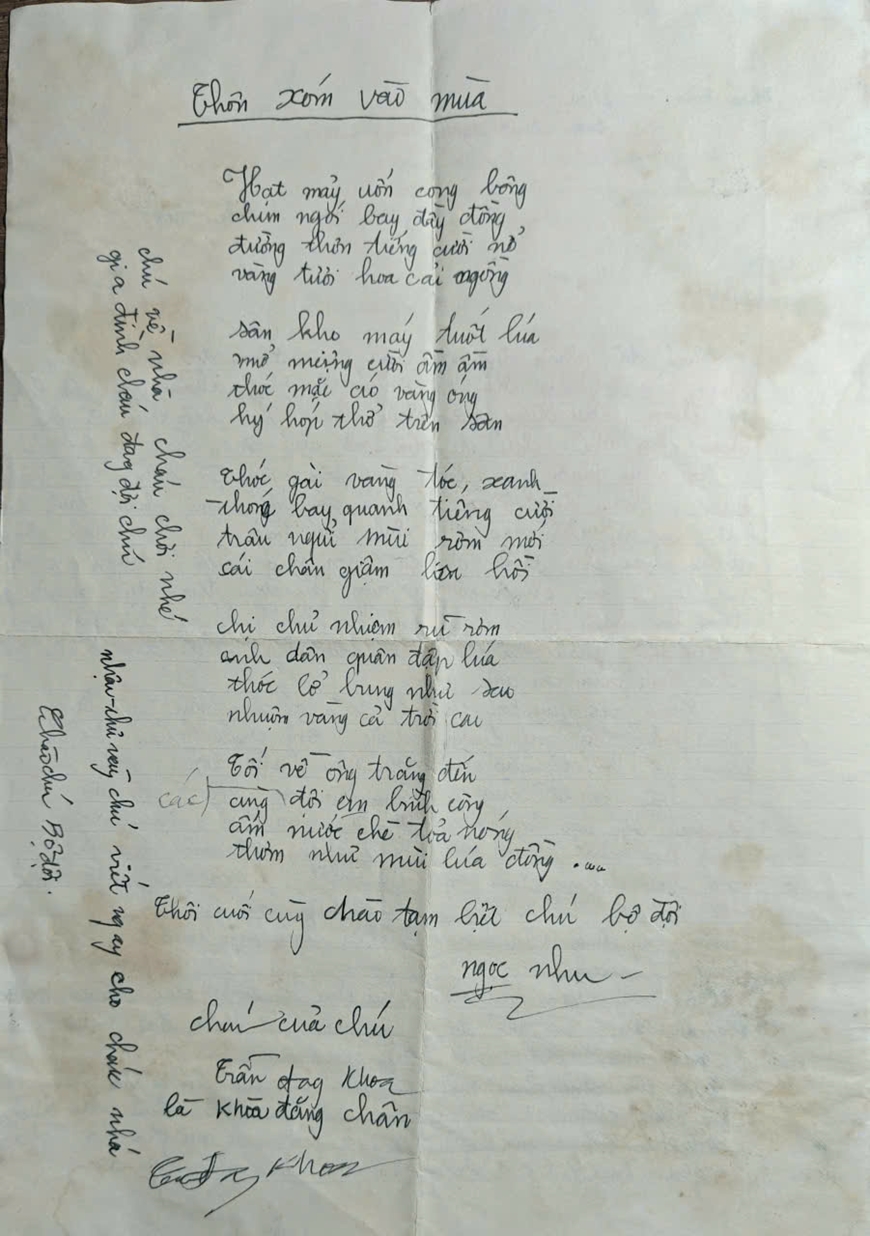 Thôn xóm vào mùa
Hạt mảy uốn cong bông
chim ngói bay đầy đồng
đường thôn tiếng cười nở
vàng tươi hoa cải ngồng
sân kho máy tuốt lúa
mở miệng cười ầm ầm
thóc mặc áo vàng óng
hý hợi thở trên sân
Thóc gài vàng tóc, xanh
thóng bay quanh tiếng cười
trâu ngửi mùi rơm mới
cái chân giậm liên hồi
chị chủ nhiệm rũ rơm
anh dân quân đập lúa
thóc lở bung như sao
nhuộm vàng cả trời cao
Tối về ông trăng đến
các
cùng đội em bình công
ấm nước chè toả nóng
thơm như mùi lúa đồng ...
Thôi cuối cùg chào tạm biệt chú bộ đội
ngọc như
cháu của chú
Trần đag Khoa
là Khoa đăng chân
Khoa
chú về nhà cháu chơi nhé
gia đình cháu đag đợi chú
nhận thư này chú viết ngay cho cháu nhá
Chào chú Bộ đội.